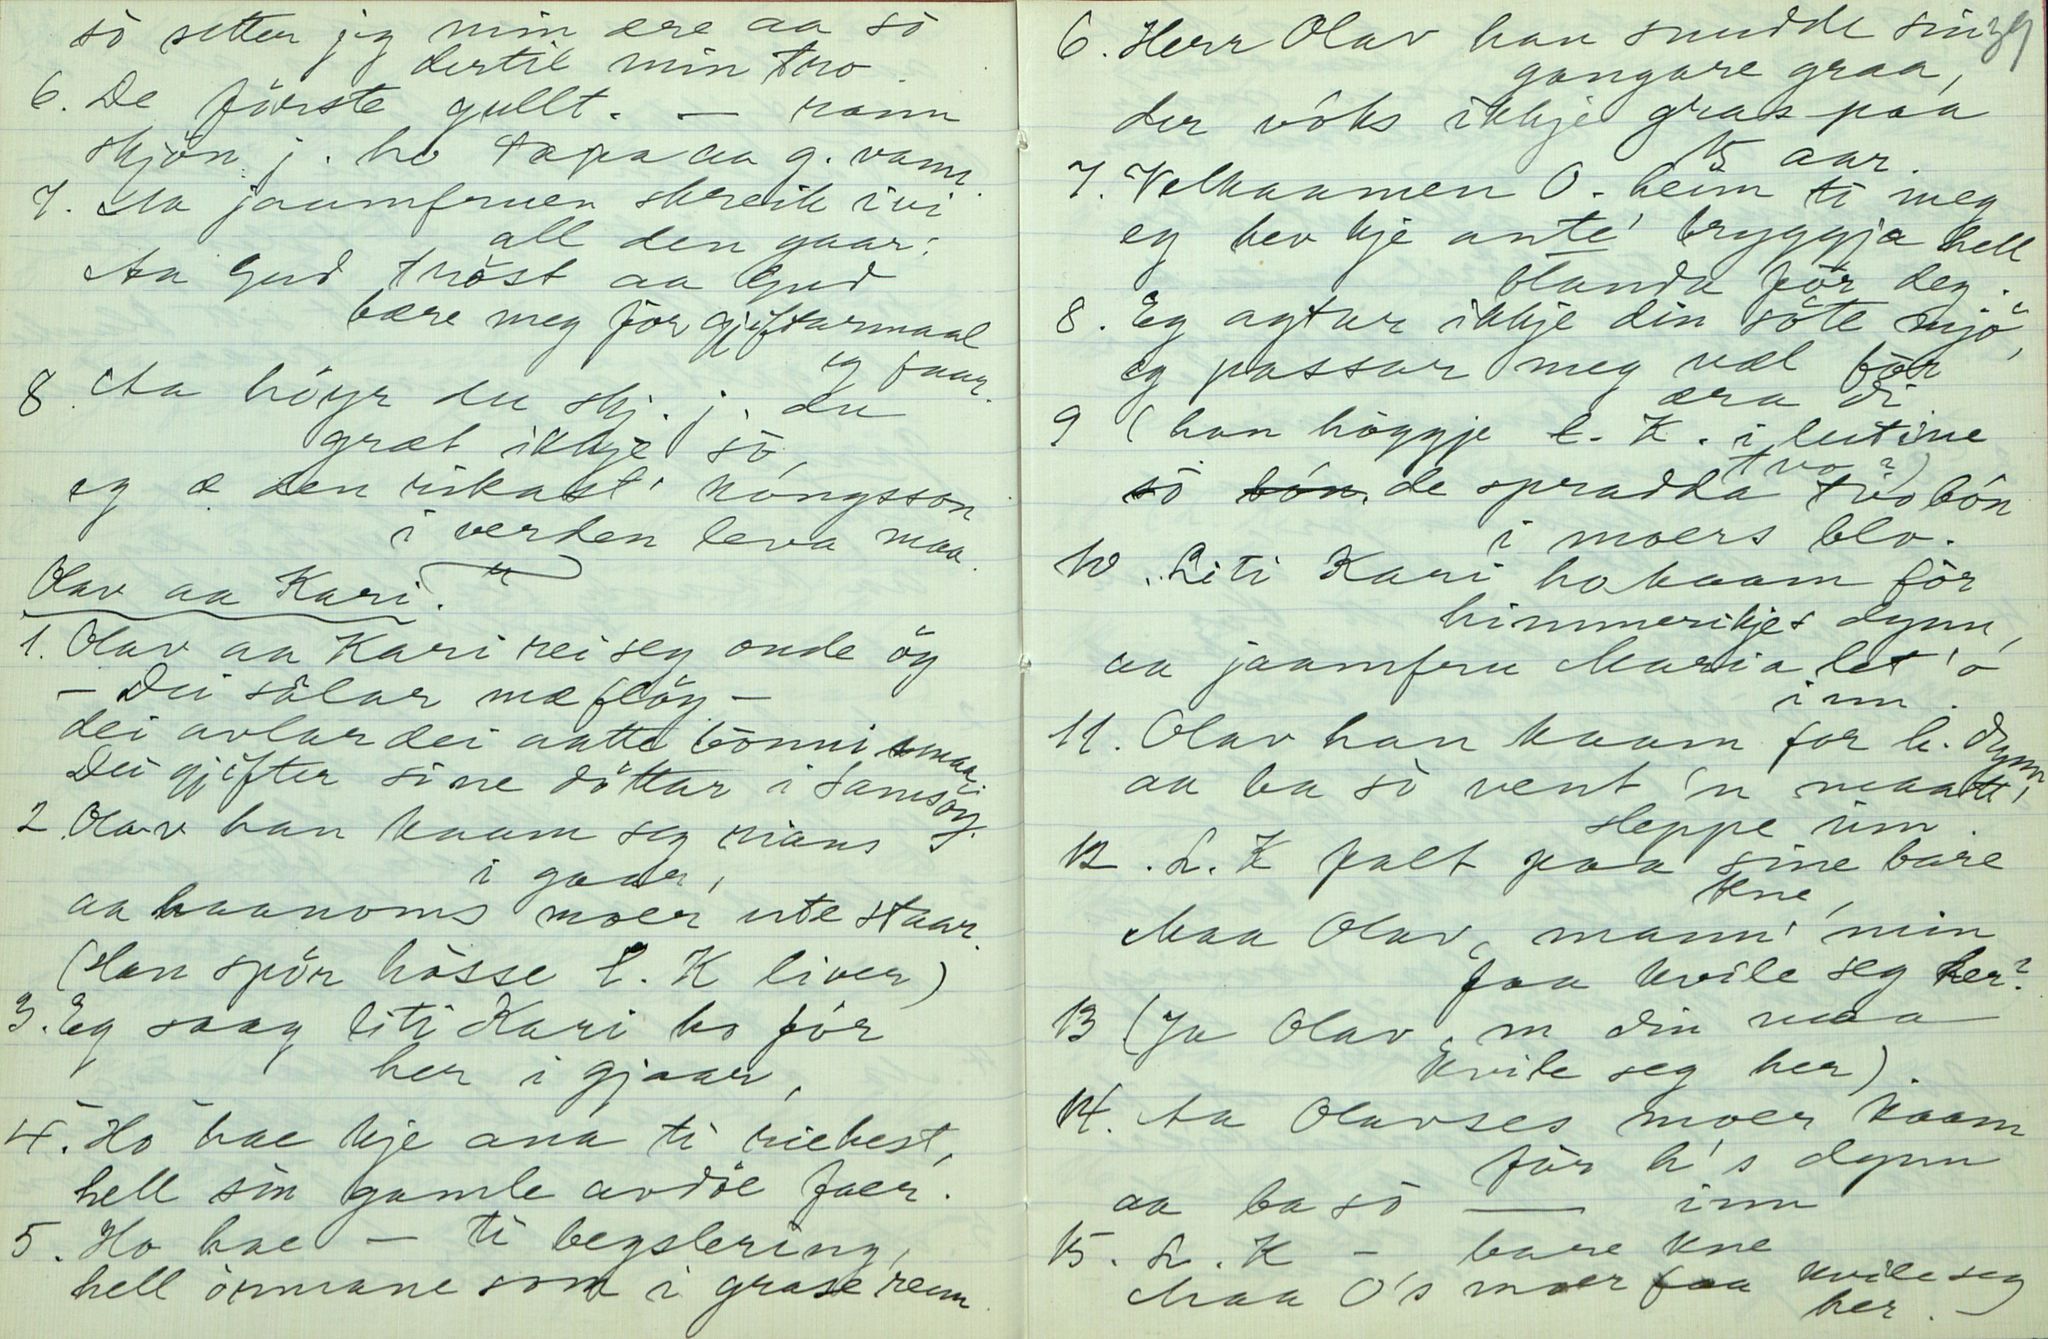 sò setter jeg min ære aa sò
dertil min tro.
6. De förste gullt. — rann
skjön j. ho tapa aa g. vann.
7. Aa jaamfruen skreik ivi
all den gaar:
Aa Gud tröst aa Gud
bære meg för gjiftarmaal
eg faar.
8. Aa höyr du skj. j. du
græt ikkje sò,
eg æ den rikast' kóngsson
i verden leva maa.
Olav aa Kari.
1. Olav aa Kari rei seg onde ög
— Dei sålar mæ flög —
dei avlar dei aatte bönni smaa
Dei gjifter sine döttar i Samsöy.
2. Olav han kaam seg rians
i gaar,
aa haanoms moer ute staar.
(Han spör hòsse l. K liver)
3. Eg saag liti Kari ho fór
her i gjaar,
4. Ho hae kje ana ti riehest,
hell sin gamle avdöe faer.
5. Ho hae — ti begslering,
hell örmane som i grase renn.
39
6. Herr Olav han snudde sin
gangare graa,
der vóks ikkje gras paa
15 aar.
7. Velkaamen O. heim ti meg
eg hev kje anté bryggja hell
blanda för deg.
8. Eg agtar ikkje din söte mjö,
eg passar meg væl för
æra di
9 (han höggje l. K. i lutine
tvo?)
sò bón. de spradda tvo bón
i moers blo.
10. Liti Kari ho kaam för
himmerikjes dynn,
aa jaamfru Maria let 'ó
inn.
11. Olav han kaam for h. dynn
aa ba sò vent 'n maatt'
sleppe inn.
12. L. K falt paa sine bare
kne,
Maa Olav, mann' min
faa kvile seg her?
13 (Ja Olav, m din maa
kvile seg her).
14. Aa Olavses moer kaam
för h's dynn
aa ba sò — inn
15. L. K — bare kne
Maa O's moer faa kvile seg
her. —